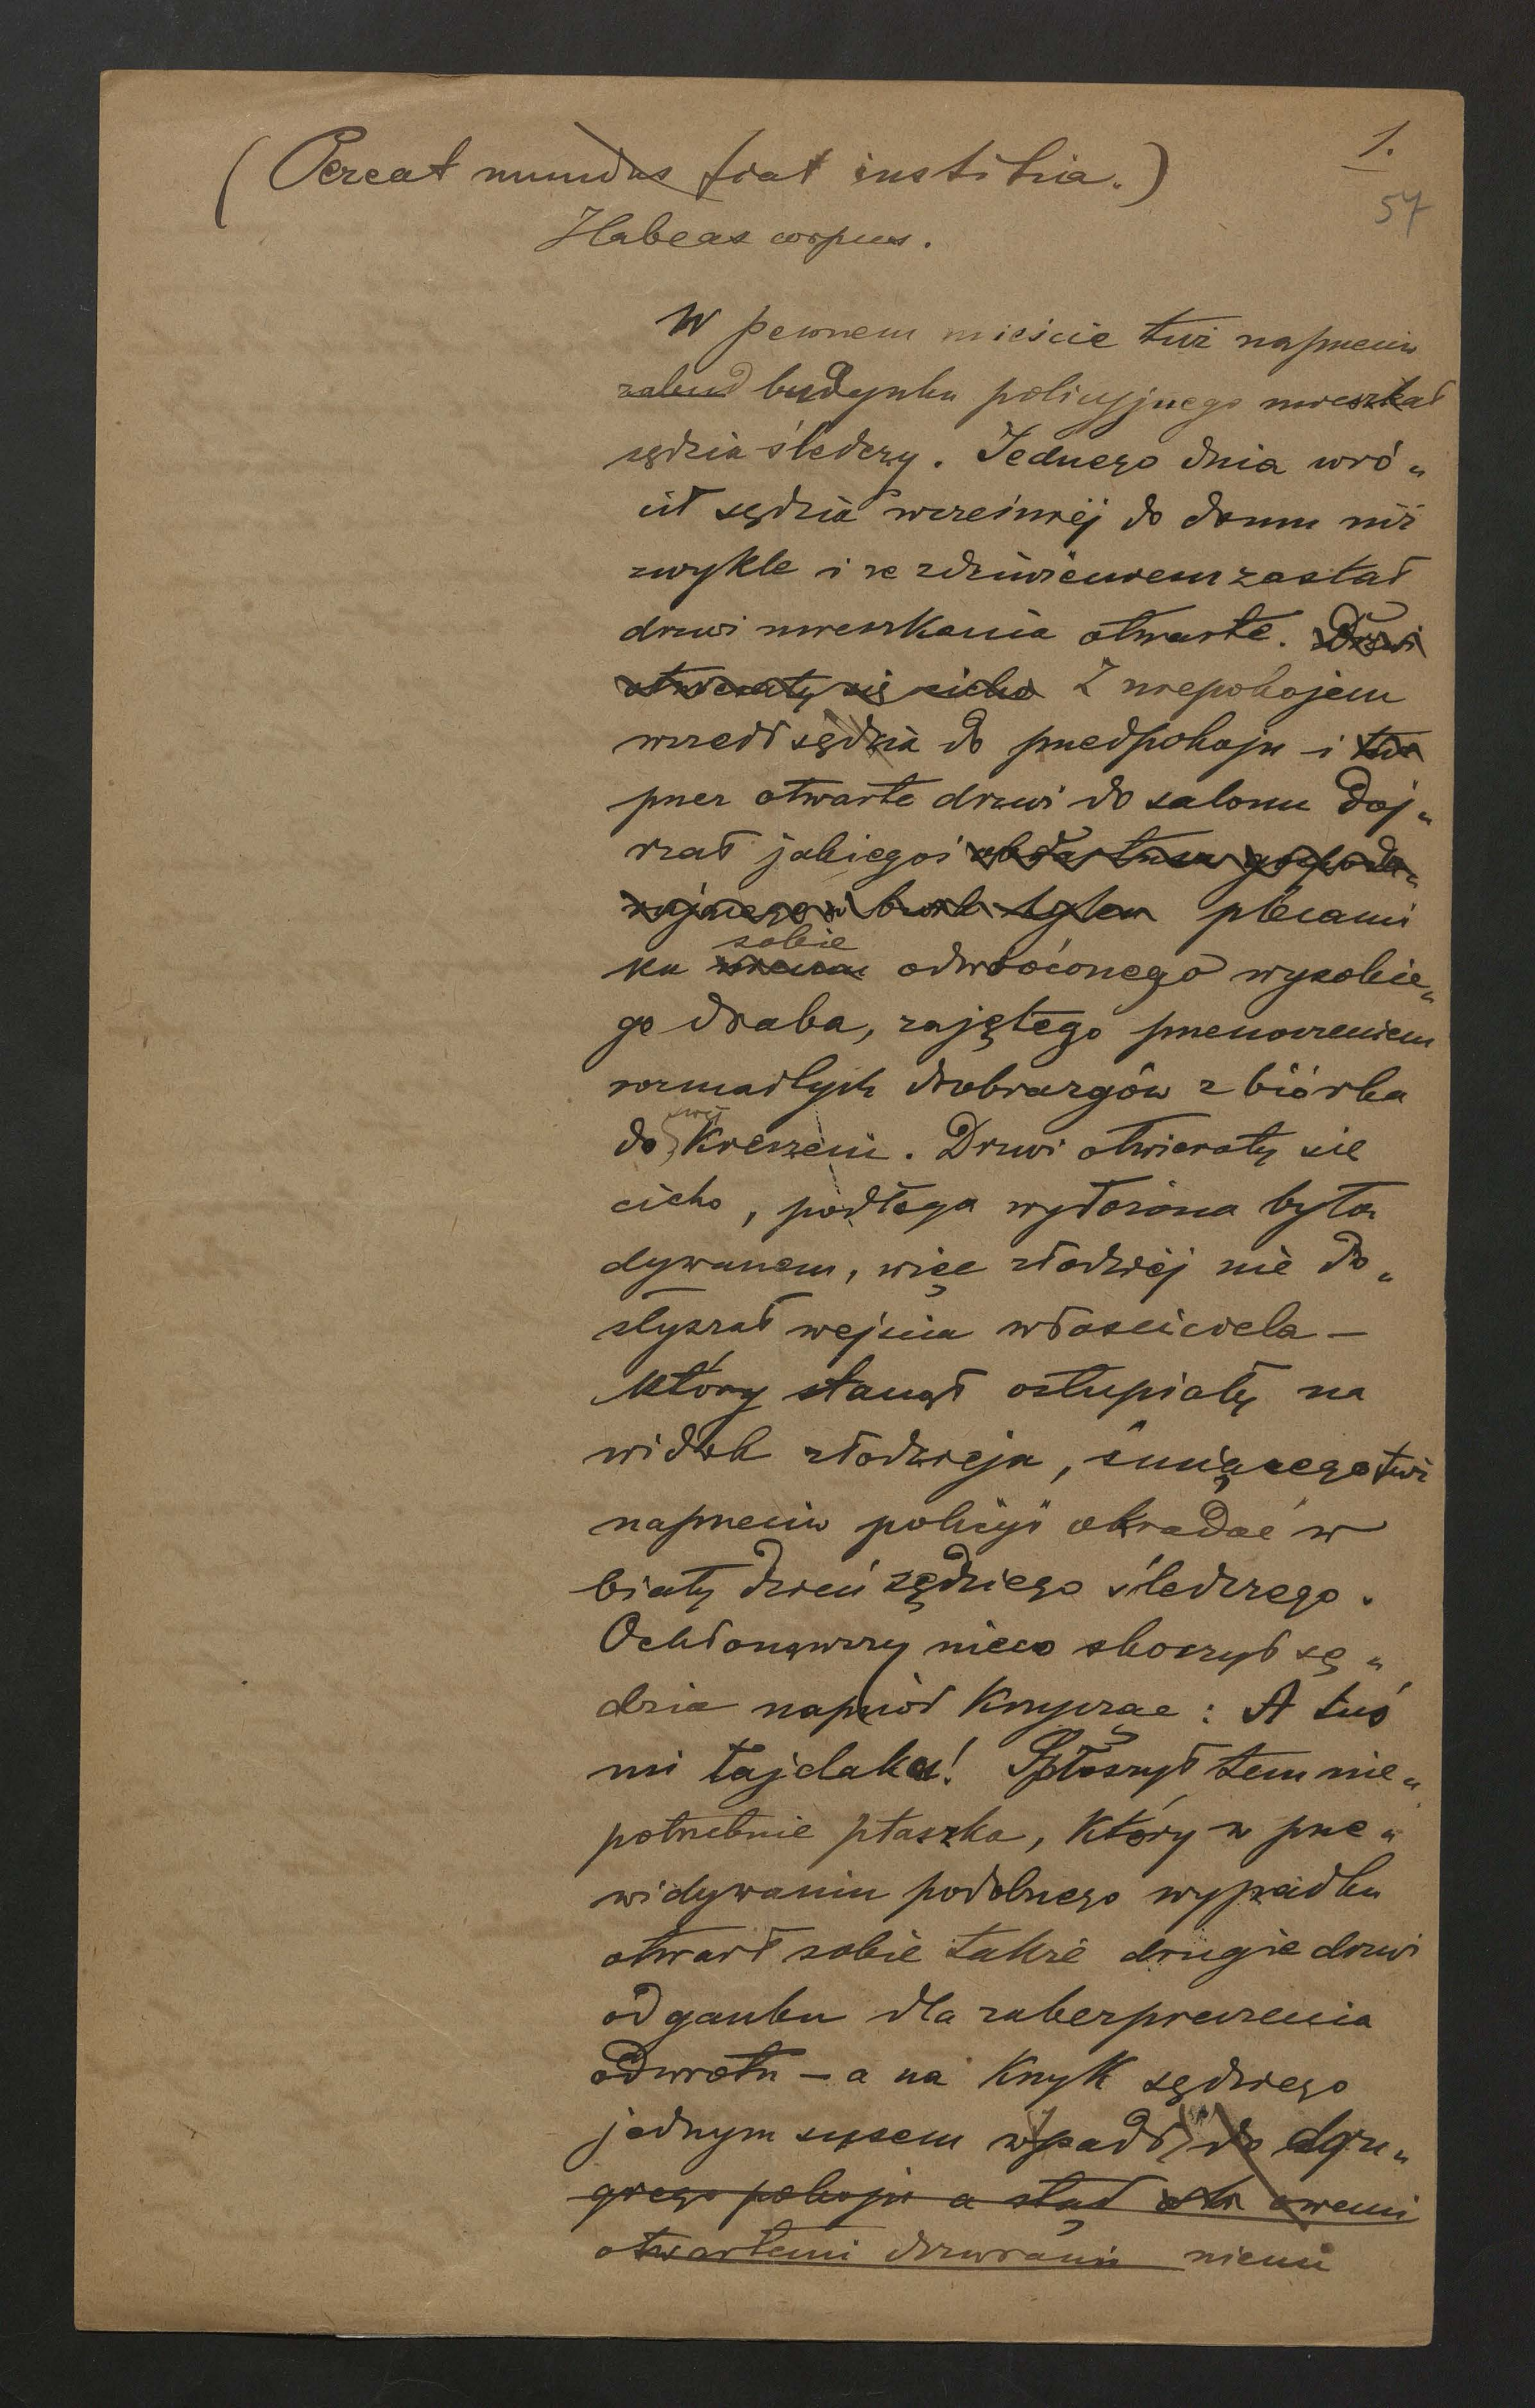 1.
57
(Pereat mundus fiat iustitia.)
Habeas corpus.
W pewnem mieście tuż naprzeciw
zabud budynku policyjnego mieszkał
sędzia śledczy. Jednego dnia wró„
cił sędzia wcześniej do domu niż
zwykle i ze zdziwieniem zastał
drzwi mieszkania otwarte. Drzwi
otwierały się cicho Z niepokojem
wszedł sędzia do przedpokoju i tu
przez otwarte drzwi do salonu doj„
rzał jakiegoś plecami
sobie
ku odwróconego wysokie„
go draba, zajętego przenoszeniem
rozmaitych drobiazgów z biórka
swej
do kieszeni. Drzwi otwierały się
cicho, podłoga wyłożona była
dywanem, więc złodziej nie do„
słyszał wejścia właściciela —
który stanął osłupiały na
widok złodzieja, śmiącego tuż
naprzeciw policyi okradać w
biały dzień sędziego śledczego.
Ochłonąwszy nieco skoczył sę„
dzia naprzód krzycząc: A tuś
mi łajdaku! Spłoszył tem nie„
potrzebnie ptaszka, który w prze„
widywaniu podobnego wypadku
otwarł sobie także drugie drzwi
od ganku dla zabezpieczenia
odwrotu — a na krzyk sędziego
jednym susem wypadł do dru„
giego pokoju a stąd owemi
otwartemi drzwiami niemi